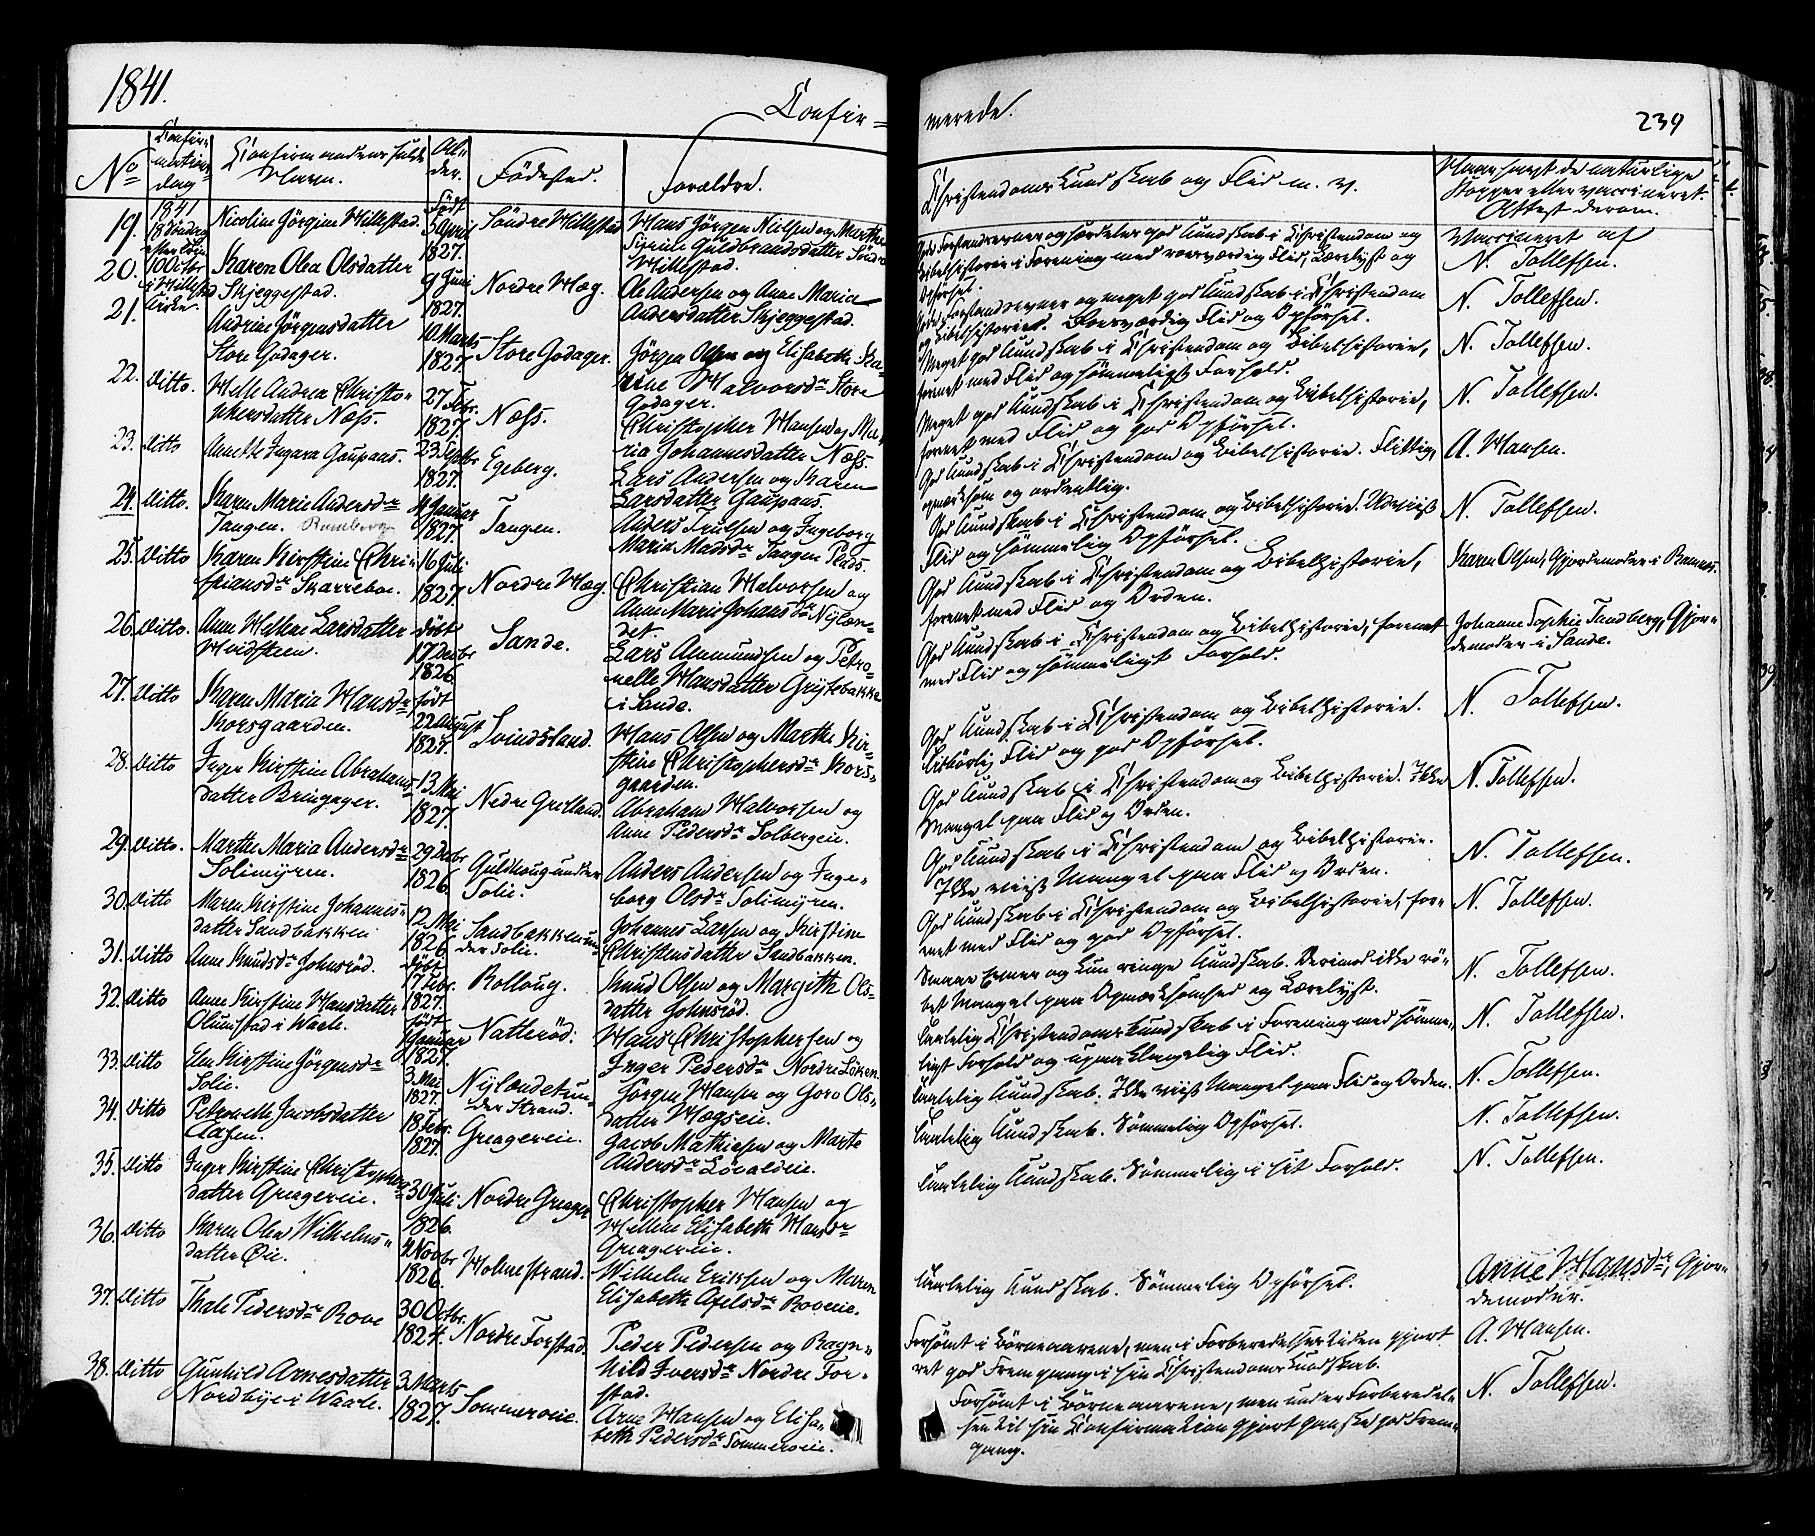 1841.
Confir=
merede.
239
No
Confir=
mations
dag
Confirmandens fulde
Navn.
Al=
der.
Fødested.
Forældre.
Christendoms Kundskab og Flid m. v.
Naar havt de naturlige
Kopper eller vaccineret.
Attest derom.
19.
1841
18 Søndag
Nicoline Jörgine Hillestad.
Født
5 April
1827.
Söndre Hillestad
Hans Jörgen Nilsen og Marthe
Sirine Guldbrandsdatter Söndre
Hillestad.
Gode Forstandsevner og særdeles god Kundskab i Christendom og
Bibelhistorie i Forening med roesværdig Flid, Lærelyst og
Opförsel.
Vaccineret af
N. Tollefsen.
20.
10 Octbr
i Hillestad
Kirke.
Karen Olea Olsdatter
Skjeggestad.
9 Juni
1827.
Nordre Hæg.
Ole Andersen og Anne Maria
Andersdatter Skjeggestad.
Gode Forstandsevner og meget god Kundskab i Christendom
og Bibelhistorie. Roesværdig Flid og Opförsel.
N. Tollefsen.
21.
Andrine Jörgensdatter
Store Godager.
10 Marts
1827.
Store Godager.
Jörgen Olsen og Elisabeth Ka=
rine Halvorsdr Store
Godager.
Meget god Kundskab i Christendom og Bibelhistorie,
forenet med Flid og sømmeligt Forhold.
N. Tollefsen.
22.
Ditto
Helle Andrea Christo=
phersdatter Næss.
27 Febr.
1827.
Næss.
Christopher Hansen og Ma=
ria Johannesdatter Næss.
Meget god Kundskab i Christendom og Bibelhistorie,
forenet med Flid og god Opförsel.
N. Tollefsen.
23.
Ditto
Annette Ingara Gaupaas.
23 Septbr
1827.
Egeberg.
Lars Andersen og Karen
Larsdatter Gaupaas.
God Kundskab i Christendom og Bibelhistorie. Flittig,
opmærksom og ordentlig.
A. Hansen.
24.
Ditto.
Karen Marie Andersdr
Tangen. Ramberg
4 Januar
1827.
Tangen.
Anders Truelsen og Ingeborg
Maria Madsdr Tangen Plads.
God Kundskab i Christendom og Bibelhistorie. Udviist
Flid og sømmelig Opförsel.
N. Tollefsen.
25.
Ditto
Karen Kirstine Chri=
stiansdr Skarreboe.
16 Juli
1827.
Nordre Hæg.
Christian Halvorsen og
Anne Marie Johansdr Nylæn=
det.
God Kundskab i Christendom og Bibelhistorie,
forenet med Flid og Orden.
Karen Olsen, Gjordemoder i Ramnes.
26.
Ditto.
Anne Helene Larsdatter
Hvidsteen.
døbt
17 Decbr
1826
Sande.
Lars Ammundsen og Petro=
nelle Hansdatter Grytebakke
i Sande.
God Kundskab i Christendom og Bibelhistorie, forenet
med Flid og sømmeligt Forhold.
Johanne Sophie Sandberg, Gjor=
demoder i Sande.
27.
Ditto
Karen Maria Hansdr
Korsgaarden.
født
22 August
1827.
Svindsland.
Hans Olsen og Marthe Kir=
stine Christophersdr Kors=
gaarden.
God Kundskab i Christendom og Bibelhistorie.
Tilbörlig Flid og god Opförsel.
N. Tollefsen.
28.
Ditto
Inger Kirstine Abrahams=
datter Bringager.
13 Mai
1827.
Nedre Grelland.
Abraham Halvorsen og
Anne Pedersdr Solbergeie.
God Kundskab i Christendom og Bibelhistorie. Ikke
Mangel paa Flid og Orden.
N. Tollefsen.
29.
Ditto.
Marthe Maria Andersdr
Solimyren.
29 Decbr
1826
Guldhoug under
Solie.
Anders Andersen og Inge=
borg Olsdr Solimyren.
God Kundskab i Christendom og Bibelhistorie.
Ikke viist Mangel paa Flid og Orden.
N. Tollefsen.
30.
Ditto
Maren Kirstine Johannes=
datter Sandbakken
12 Mai
1826
Sandbakken un=
der Solie.
Johannes Larsen og Kirstine
Christensdatter Sandbakken.
God Kundskab i Christendom og Bibelhistorie, fore=
net med Flid og god Opförsel.
N. Tollefsen.
31.
Ditto
Anne Knudsdr Johnsröd.
døbt
17 Febr.
1827.
Rolloug.
Knud Olsen og Margith Ols=
datter Johnsröd.
Svage Evner og kun ringe Kundskab. Derimod ikke rö=
bet Mangel paa Opmærksomhed og Lærelyst.
N. Tollefsen.
32.
Ditto
Anne Kirstine Hansdatter
Olumstad i Waale.
født
1 Januar
1827.
Natteröd.
Hans Christophersen og
Inger Pedersdr Nordre Löken
Taalelig Christendomskundskab i Forening med sømme=
ligt Forhold og upaaklagelig Flid.
N. Tollefsen.
33.
Ditto
Elen Kirstine Jörgensdr
Solie.
3 Mai
1827.
Nylændet un=
der Strand.
Jörgen Hansen og Goro Ols=
datter Hægseie.
Taalelig Kundskab. Ikke viist Mangel paa Flid og Orden.
N. Tollefsen.
34.
Ditto
Petronelle Jacobsdatter
Aasen.
18 Febr.
1827.
Greagereie.
Jacob Mathiesen og Marte
Andersdr Lövaldeie.
Taalelig Kundskab. Sømmelig Opförsel.
N. Tollefsen.
35.
Ditto
Inger Kirstine Christophers=
datter Greagereie.
30 Juli
1826.
Nordre Greager
Christopher Hansen og
Hellene Elisabeth Hansdr
Greagereie.
Taalelig Kundskab. Sømmelig i sit Forhold.
N. Tollefsen.
36.
Ditto
Karen Olea Wilhelms=
datter Öie.
4 Novbr
1826.
Holmestrand.
Wilhelm Eriksen og Maren
Elisabeth Axelsdr Roveie.
Taalelig Kundskab. Sømmelig Opförsel.
Anne Hansdr, Gjor=
demoder.
37.
Ditto
Thale Pedersdr Rove
30 Octbr.
1824.
Nordre Forstad.
Peder Pedersen og Ragn=
hild Iversdr Nordre For=
stad.
Forsömt i Börneaarene, men i Forberedelsestiden gjort
ret god Fremgang i sin Christendomskundskab.
A. Hansen.
38.
Ditto
Gunhild Arnesdatter
Nordbye i Waale.
3 Marts
1827.
Sommeroeie.
Arne Hansen og Elisa=
beth Pedersdr Sommeroeie.
Forsömt i Börneaarene, men under Forberedel=
sen til sin Confirmation gjort ganske god Frem=
gang.
N. Tollefsen.